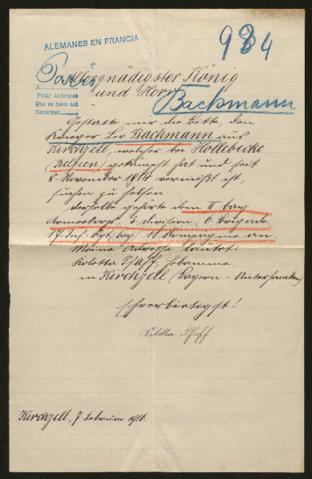 ALEMANES EN FRANCIA
984
París
Pedir informes
Allergnädigster König
und Herr
Bachmann
Gestatte mir die Bitte den
Krieger Leo Bachmann aus
Kirchzell, welcher bei Hollebecke
(Belgien) gekämpft hat und seit
8. November 1914 vermißt ist
suchen zu helfen
derselbe gehörte dem II bay
Armeekorps 3. division, 6. brigade
17 Inf. Rgt. bay. 11. Kompagnie an.
Meine Adresse lautet:
Pfaff, Hebamme
in Kirchzell (Bayern - Unterfranken)
Ehrerbietigst!
Pfaff
Kirchzell, 7 Februar